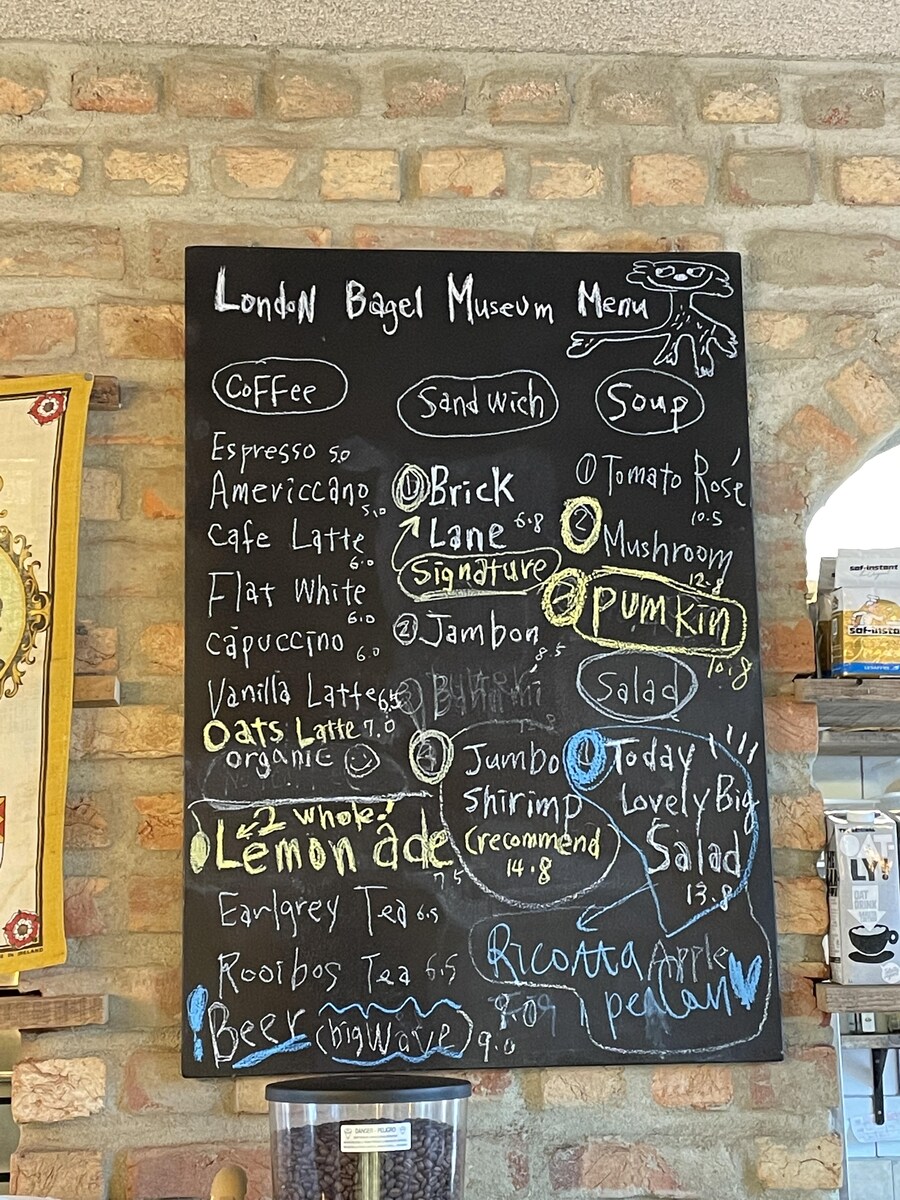 London Bagel Museum Menu
Coffee
Espresso 5.0
Americcano
5.0
Cafe Latte
6.0
Flat White
6.0
capuccino 6.0
Vanilla Latte 6.5
Oats Latte 7.0
organic
2 whole!
Lemon ade
7.5
Earlgrey Tea 6.5
Rooibos Tea 6.5
! Beer (bigwave) 9.0
Sandwich
① Brick
Lane 6.8
Signature
② Jambon
8.5
③
④ Jumbo
Shirimp
(recommend
14.8
Soup
① Tomato Rosé
10.5
② Mushroom
12.8
③ pumkin
10.8
Salad
① Today
Lovely Big
Salad
13.8
Ricotta Apple
pecan
saf-instant
saf-insta
OAT
LY!
DANGER - PELIGRO